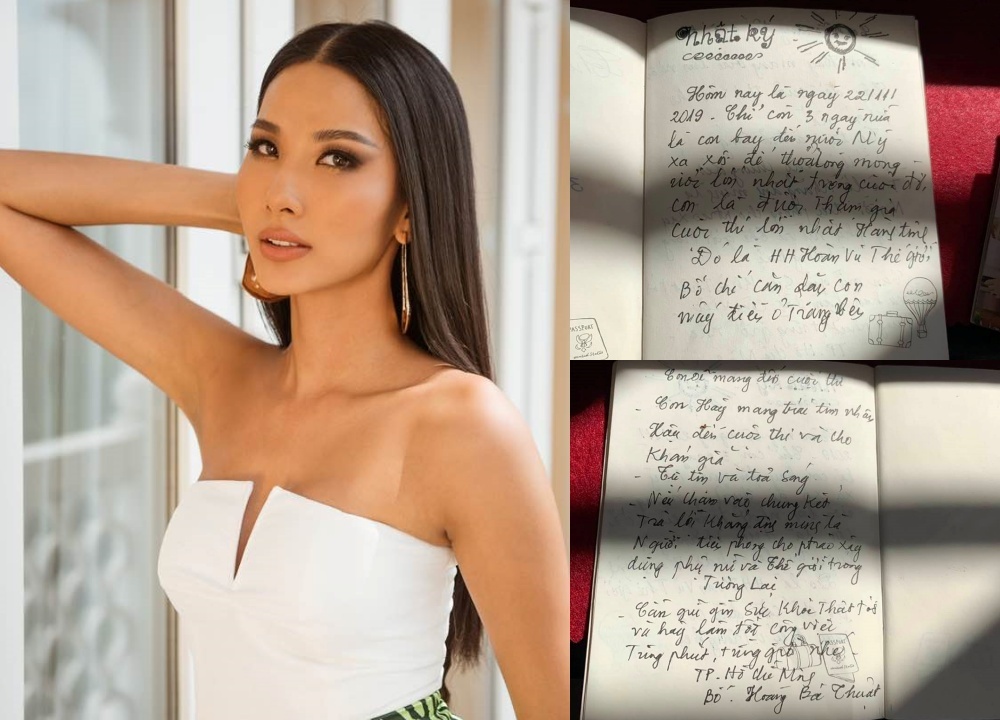 Nhật ký
Hôm nay là ngày 22/11/
2019. Chỉ còn 3 ngày nữa
là con bay đến nước Mỹ
xa xôi để thoả lòng mong
ước lớn nhất trong cuộc đời,
con là được tham gia
cuộc thi lớn nhất Hành tinh
Đó là HH Hoàn Vũ Thế giới,
Bố chỉ cần dặn con
mấy điều ở Trang Bên
PASSPORT
Con để mang đến cuộc thi
- Con Hãy mang trái tim nhân
Hậu đến cuộc thi và cho
Khán giả
- Tự tin và toả sáng
- Nếu chân vào chung kết
Trả lời Khẳng định mình là
Người tiên phong cho ptrào xây
dựng phụ nữ và Thế giới trong
Tương Lai
- Cần giữ gìn Sức Khoẻ Thật tốt
và hãy làm tốt công việc
Từng phút, từng giờ nhé
PASSPORT
TP. Hồ Chí Minh
Bố: Hoàng Bá Thuật